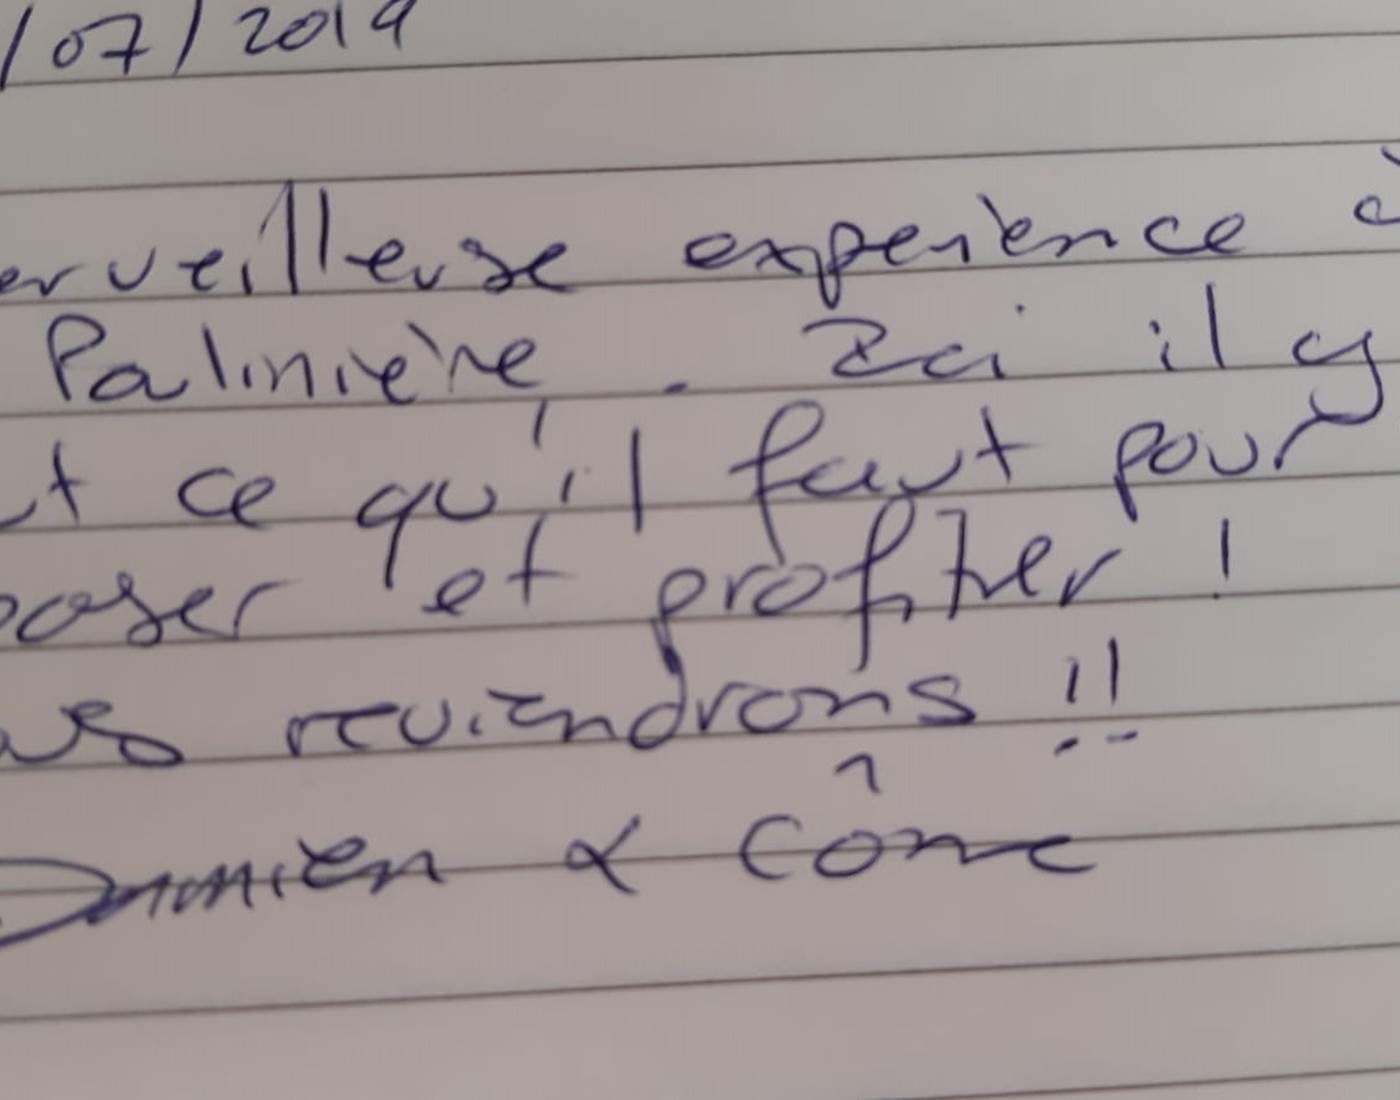 /07/2019
erveilleuse experience à
Palinière. Ici il y
ut ce qu'il faut pour
poser et profiter !
ous reviendrons !!
Damien & Côme